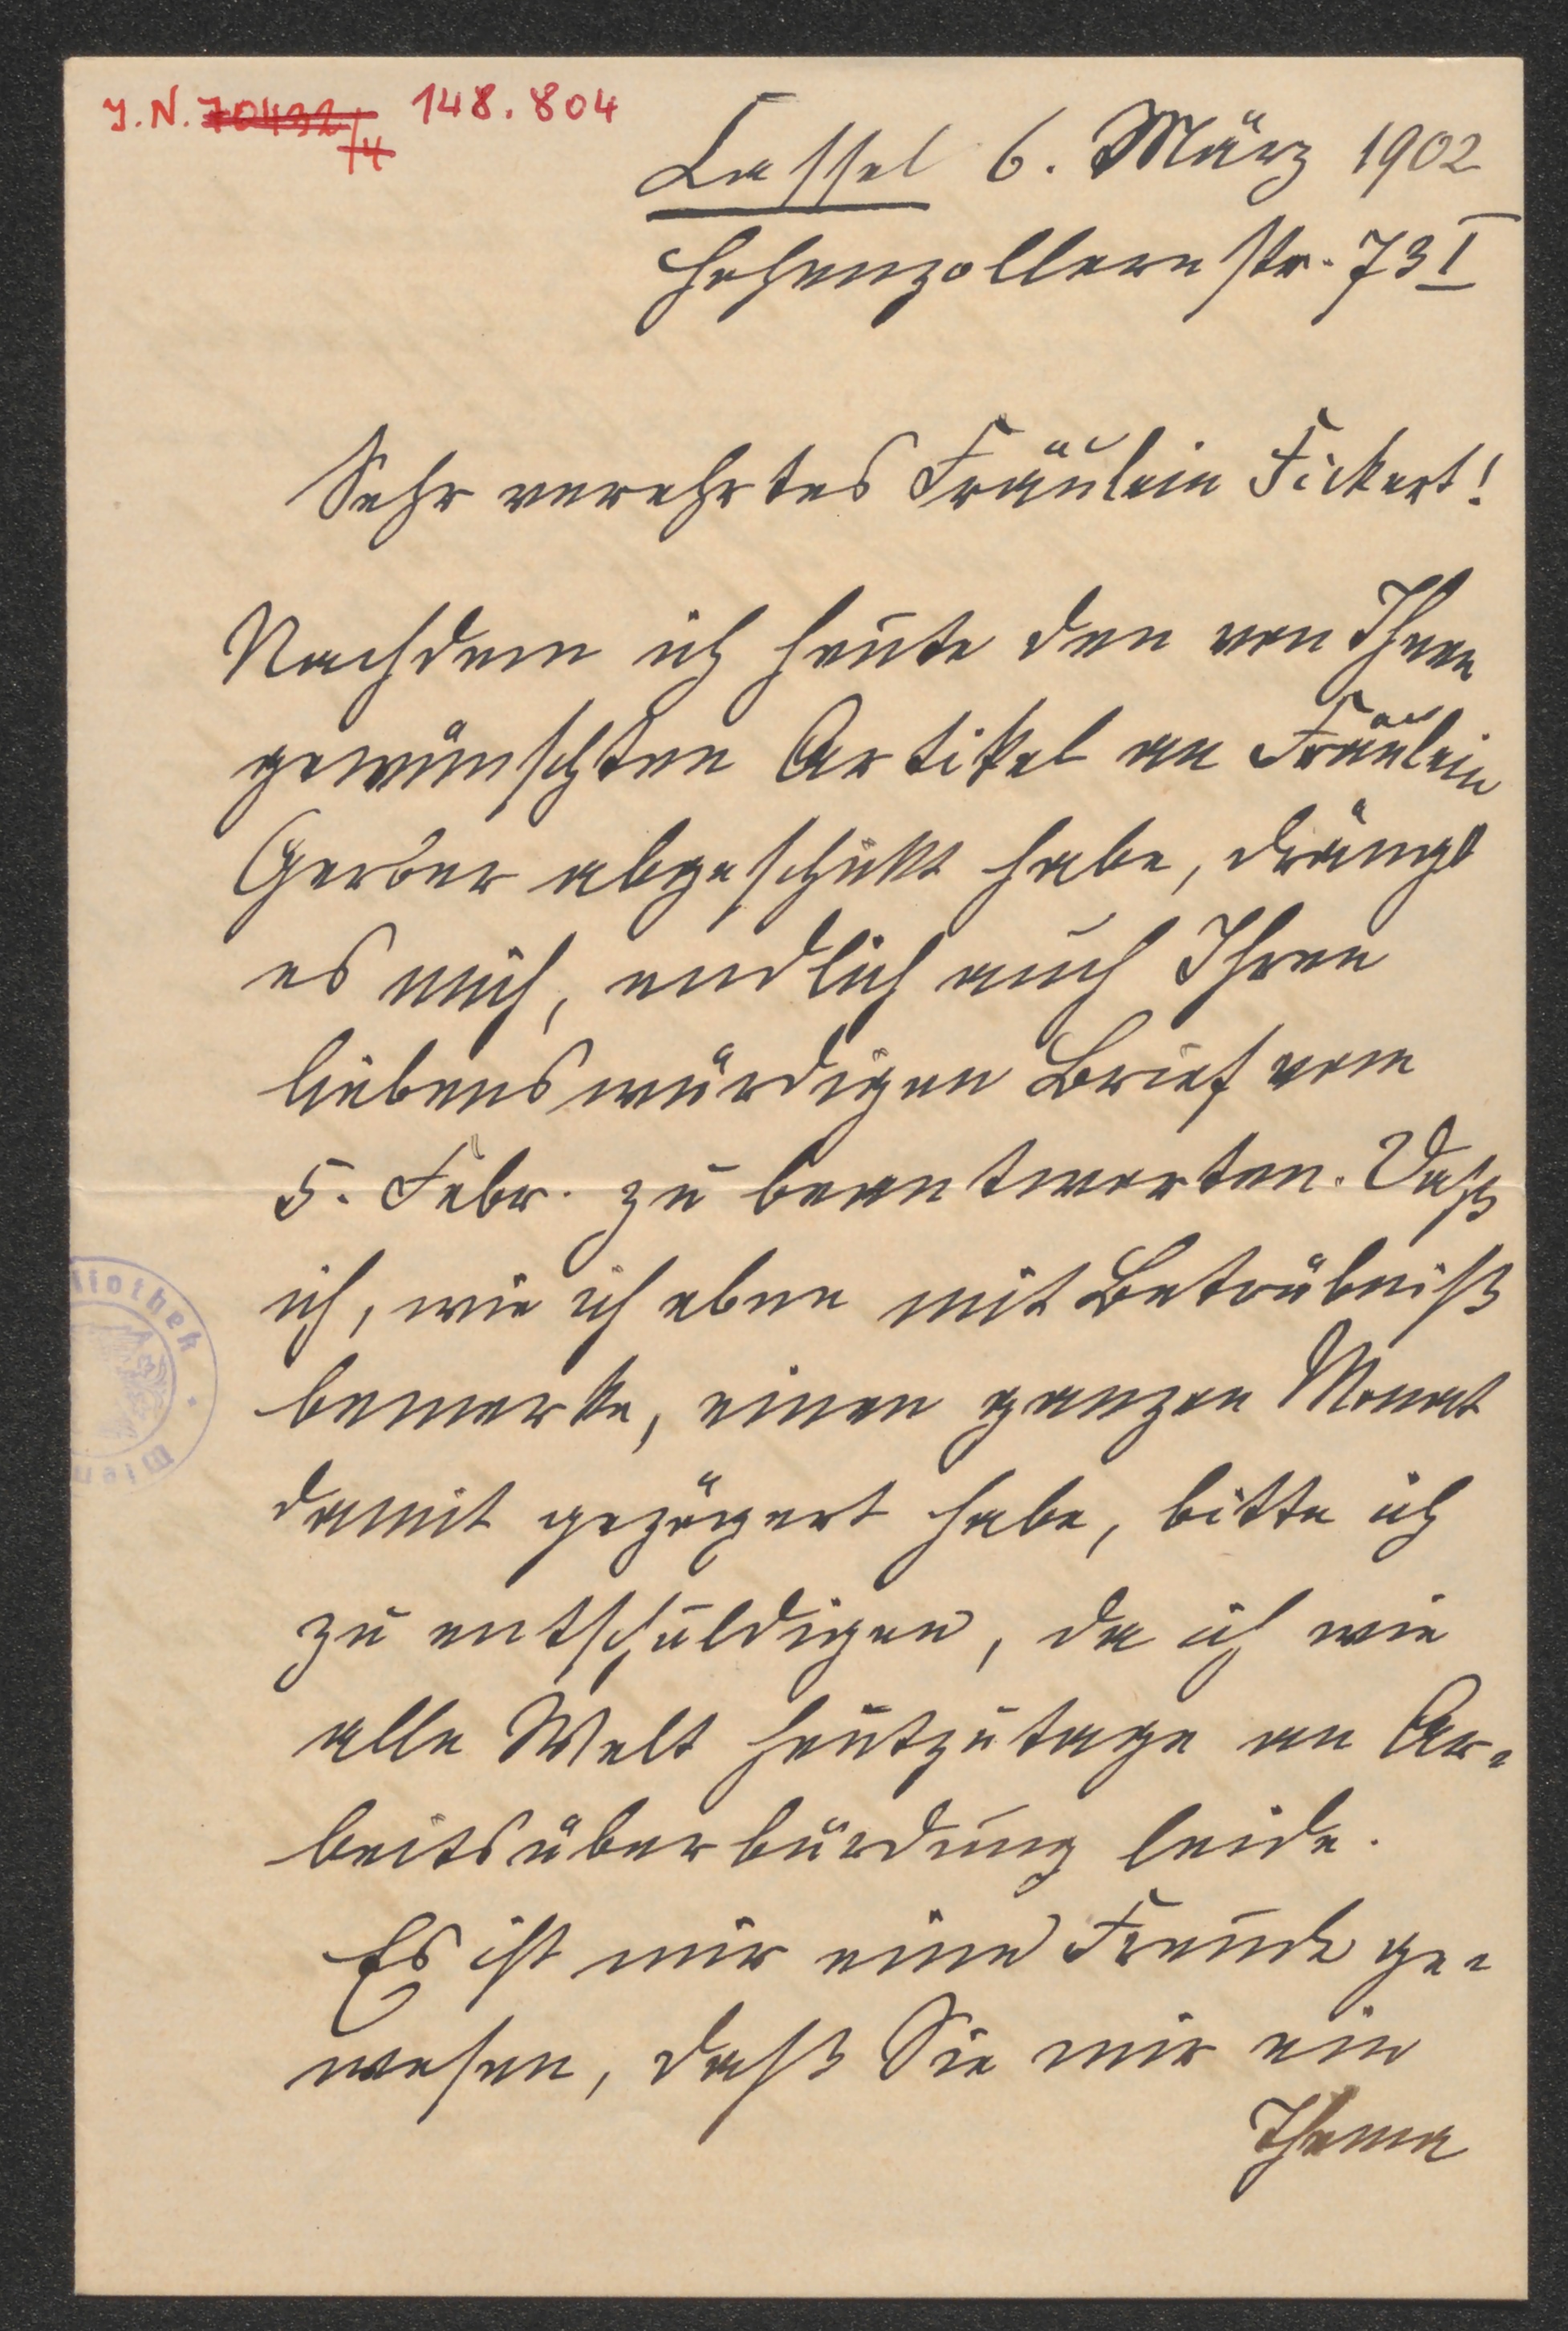 J. N. 70432/4 148.804
Cassel 6. März 1902
Hohenzollernstr. 73 I
Sehr verehrtes Fräulein Fickert!
Nachdem ich heute den von Ihnen
gewünschten Artikel an Fräulein
Gerber abgeschickt habe, drängt
es mich, endlich auch Ihren
liebenswürdigen Brief vom
5. Febr. zu beantworten. Daß
ich, wie ich eben mit Betrübniß
bemerke, einen ganzen Monat
damit gezögert habe, bitte ich
zu entschuldigen, da ich wie
alle Welt heutzutage an Ar-
beitsüberbürdung leide.
Es ist mir eine Freude ge-
wesen, daß Sie mir ein
Thema
liothek
Wien